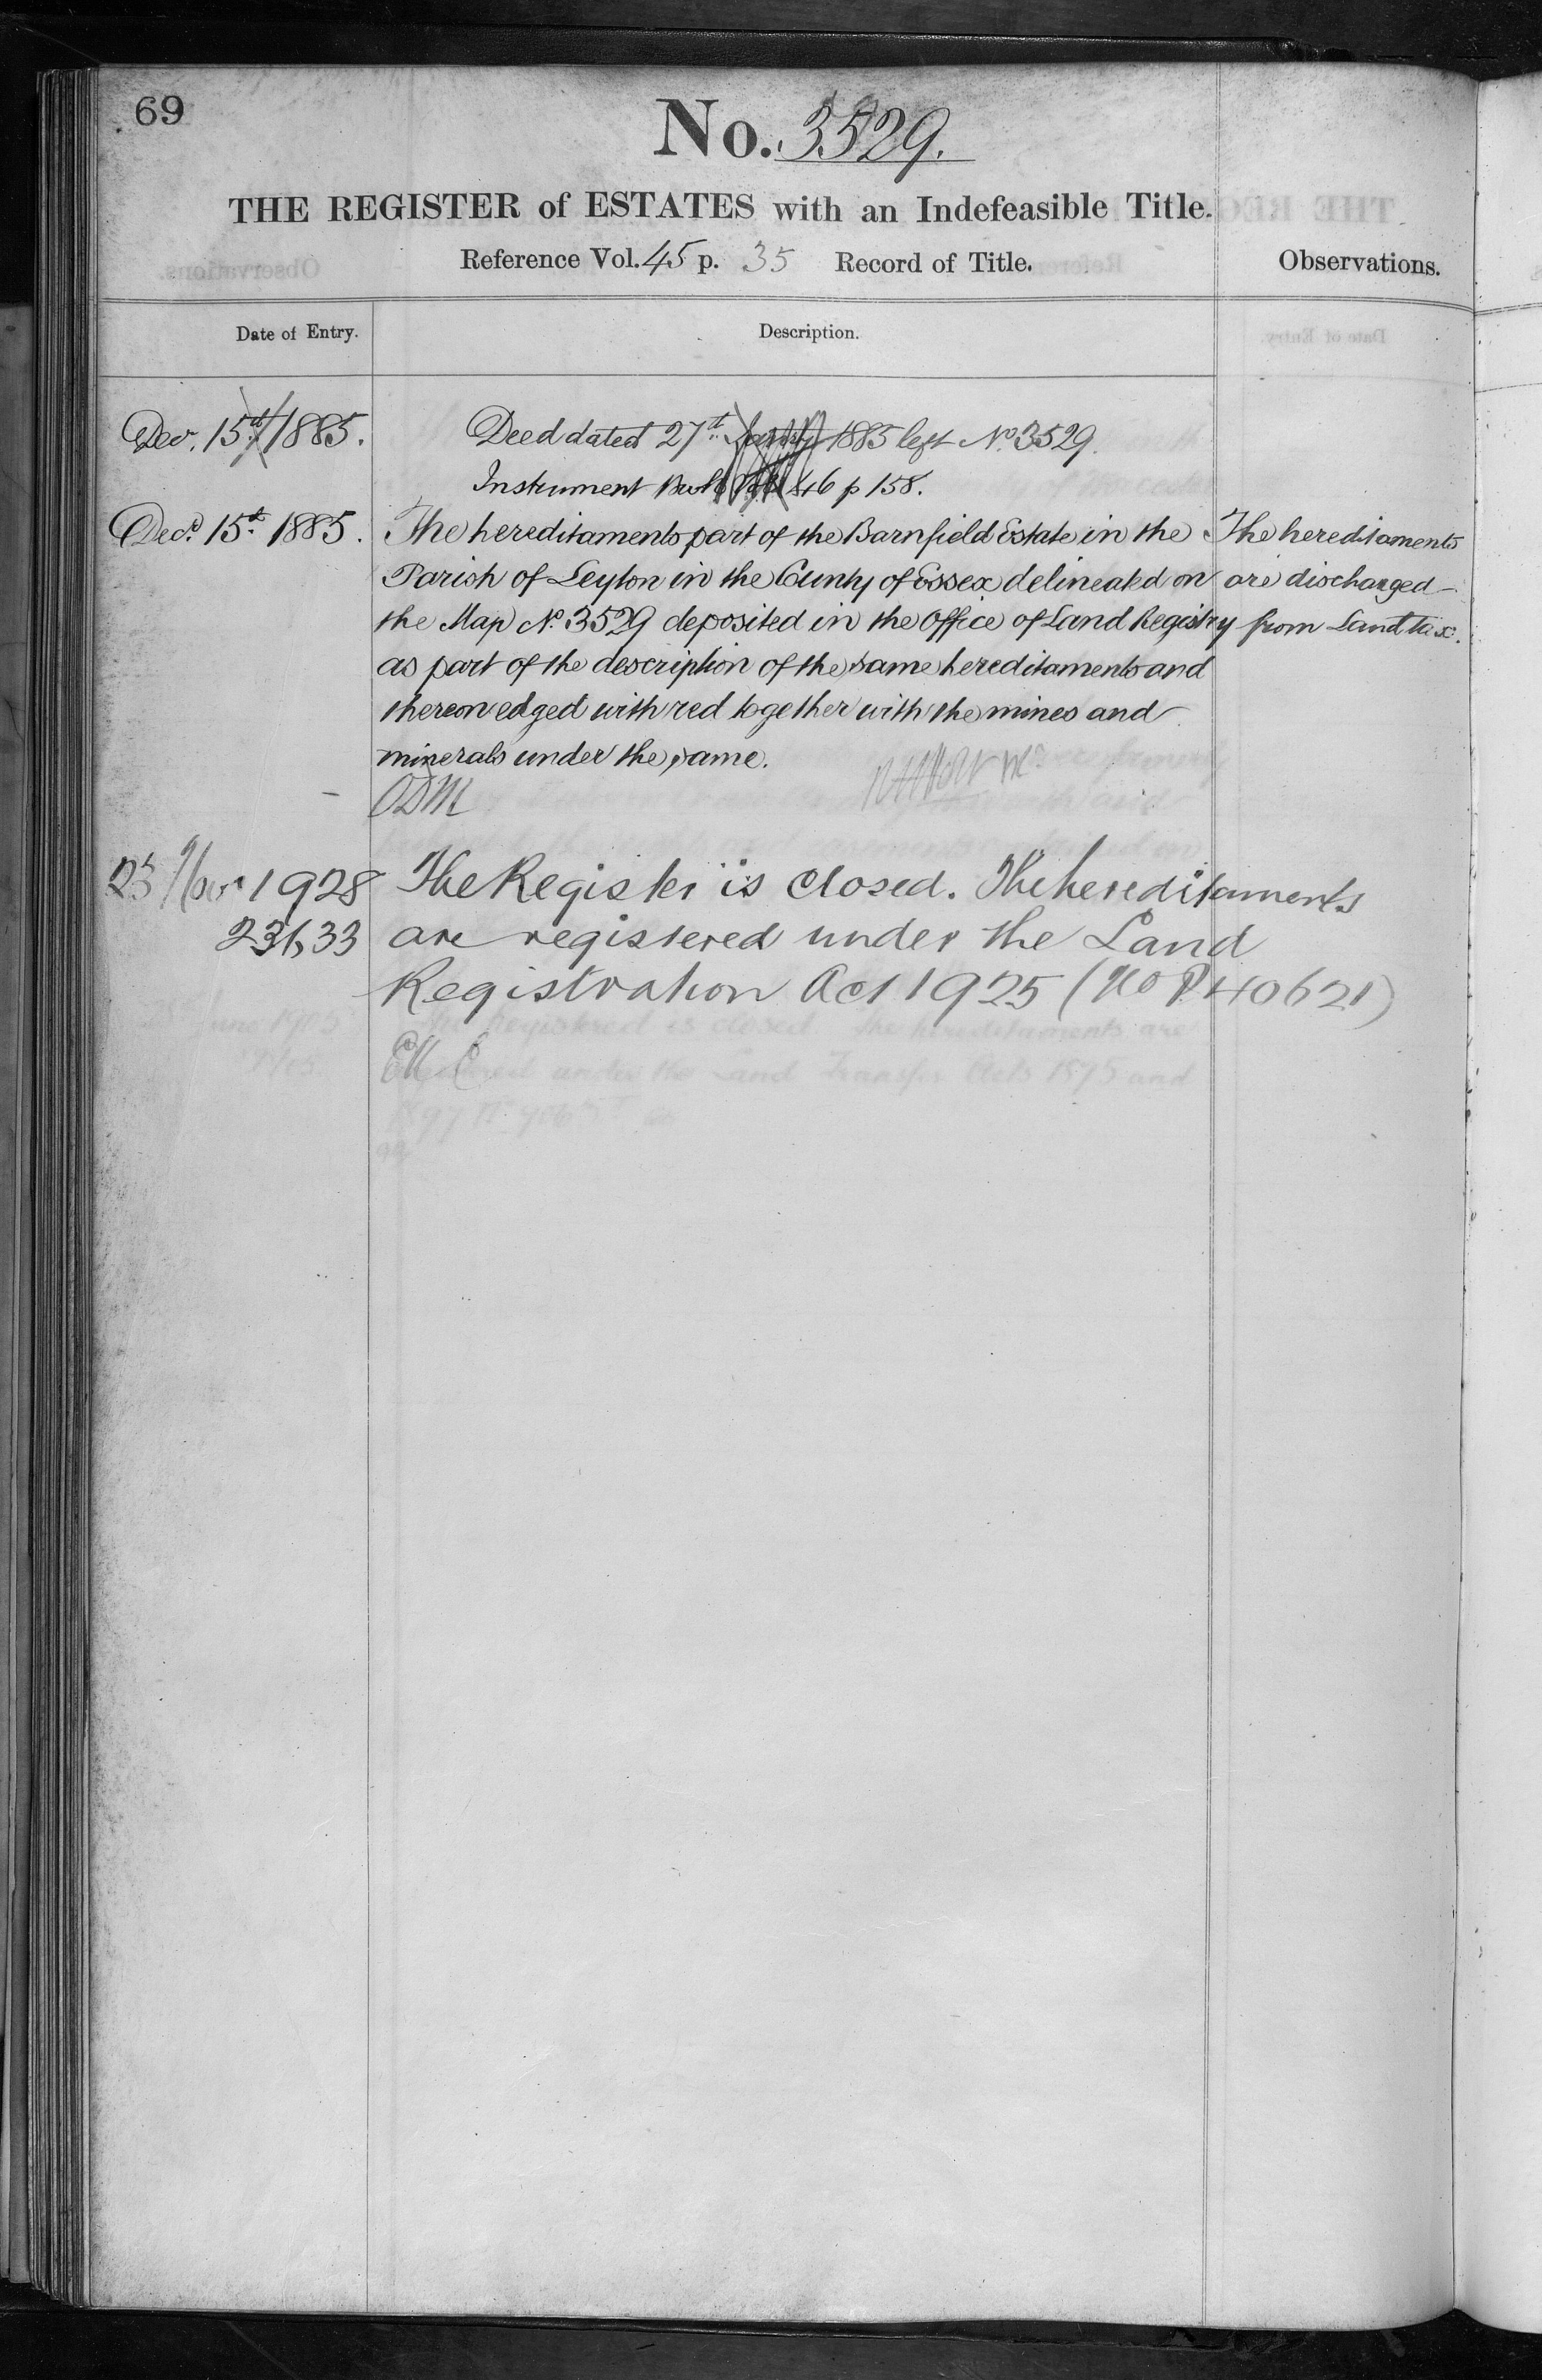 69
No. 3529.
THE REGISTER of ESTATES with an Indefeasible Title.
Reference Vol. 45 p. 35 Record of Title.
Observations.
Date of Entry.
Description.
Decr. 15th 1885.
Deed dated 27th 1885 left No. 3529.
Instrument 46 p 158.
Decr. 15th 1885.
The hereditaments part of the Barnfield Estate in the
Parish of Leyton in the County of Essex delineated on
the Map No. 3529 deposited in the Office of Land Registry
as part of the description of the same hereditaments and
thereon edged with red together with the mines and
minerals under the same.
The hereditaments
are discharged
from Land tax.
ODM
23 Novr 1928
The Register is closed. The hereditaments
are registered under the Land
Registration Act 1925 (No P40621)